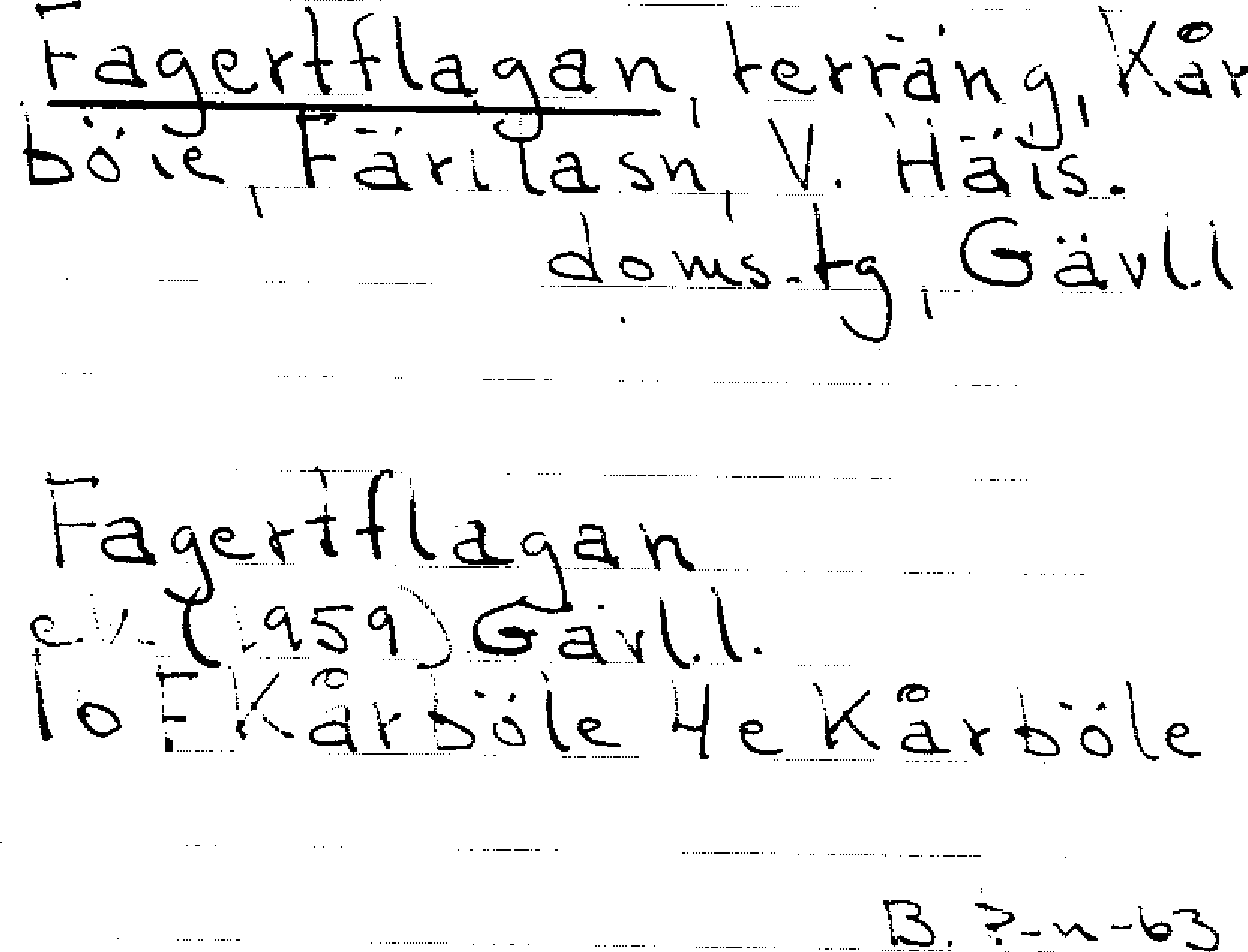 Fagertflagan, terräng, Kår
böle, Färila sn, V. Häls.
doms.tg, Gävl.l
Fagertflagan
ek. (1959) Gävl.l.
10 F Kårböle 4e Kårböle
B.